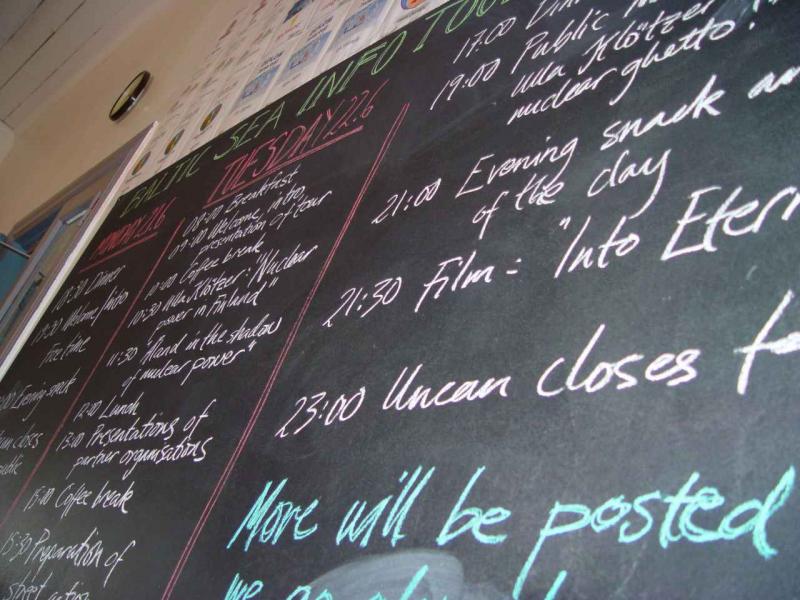 BALTIC SEA INFO TOUR
MONDAY 21.6
18:30 Dinner
19:30 Welcome/Intro
Free time
Evening snack
closes
TUESDAY 22.6
08:00 Breakfast
09:00 Welcome, intro,
presentation of tour
10:00 Coffee break
10:30 Ulla Klötzer: "Nuclear
power in Finland"
11:30 "Åland in the shadow
of nuclear power"
12:00 Lunch
13:00 Presentations of
partner organisations
15:00 Coffee break
15:30 Preparation of
street action
17:00
19:00 Public
Ulla Klötzer
nuclear ghetto?"
21:00 Evening snack an
of the day
21:30 Film: "Into Eter
23:00 Uncan closes f
More will be posted
we go